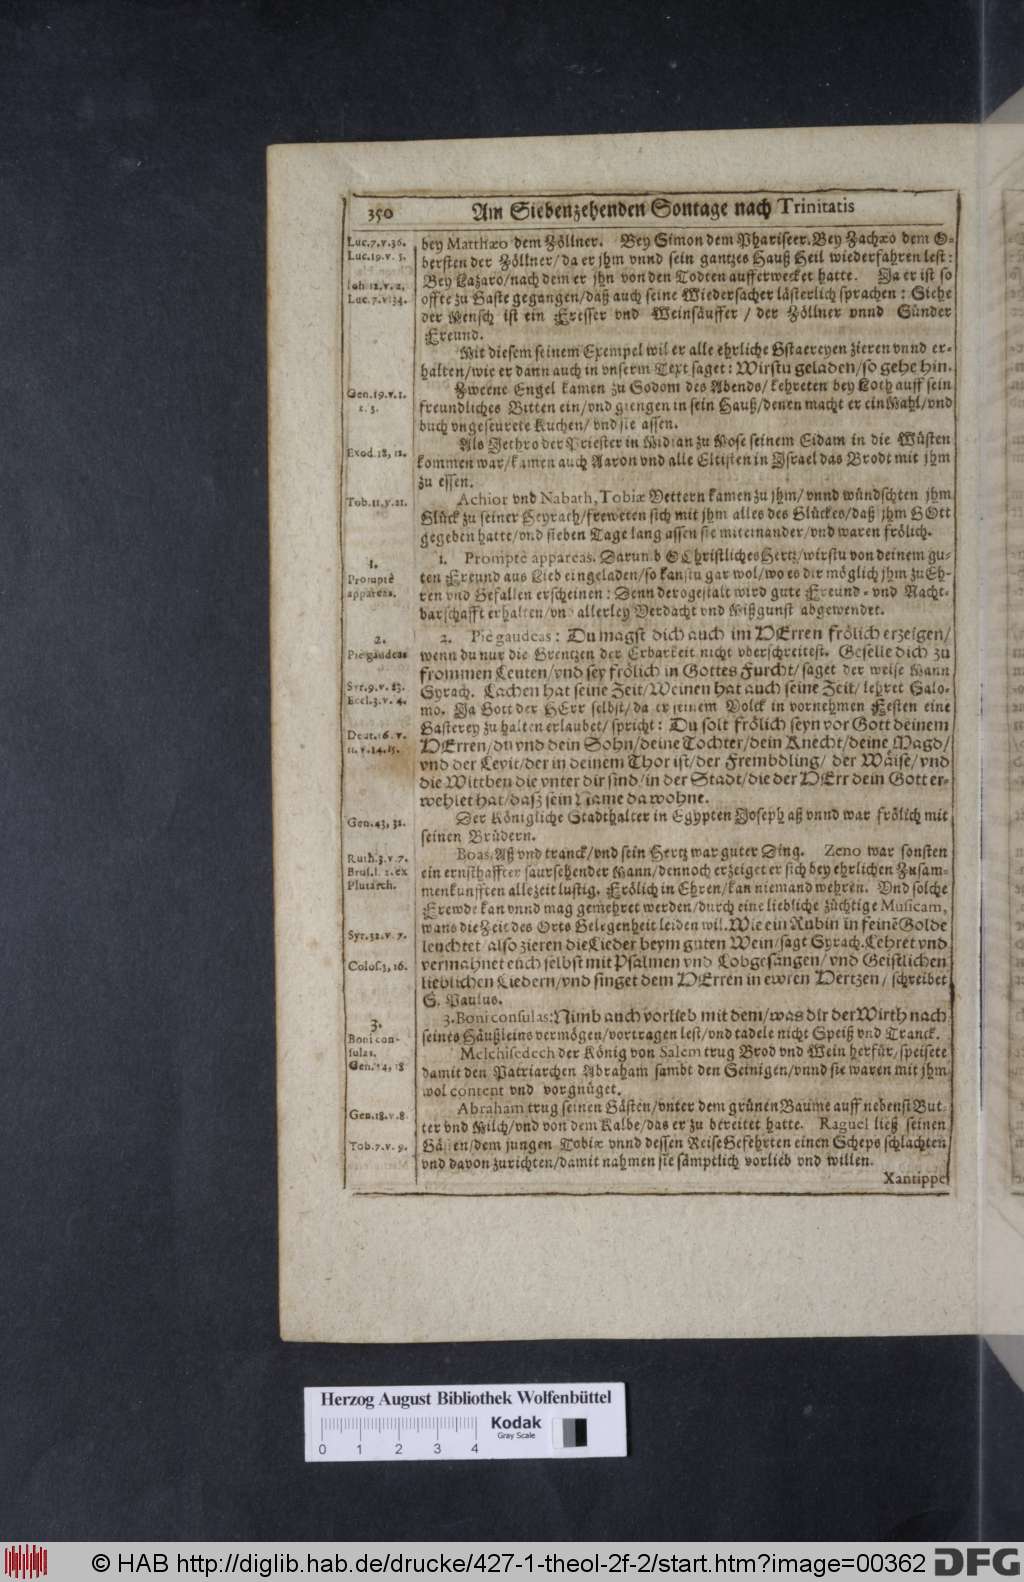 350 Am Siebenzehenden Sontage nach Trinitatis
Luc.7.v.36.
Luc.19.v.5.
Ioh.12.v.2.
Luc.7.v.34.
bey Matthæo dem Zöllner. Bey Simon dem Phariseer. Bey Zachæo dem O-
bersten der Zöllner/da er jhm vnnd sein gantzes Hauß Heil wiederfahren lest:
Bey Lazaro/nach dem er jhn von den Todten aufferwecket hatte. Ja er ist so
offte zu Gaste gegangen/daß auch seine Wiedersacher lästerlich sprachen: Siehe
der Mensch ist ein Fresser vnd Weinsäuffer/ der Zöllner vnnd Sünder
Freund.
Mit diesem seinem Exempel wil er alle ehrliche Gstaereyen zieren vnnd er-
halten/wie er dann auch in vnserm Text saget: Wirstu geladen/so gehe hin.
Gen.19.v.1.
2.3.
Zweene Engel kamen zu Sodom des Abends/kehreten bey Loth auff sein
freundliches Bitten ein/vnd giengen in sein Hauß/denen macht er ein Mahl/vnd
buch vngeseurete Kuchen/ vnd sie assen.
Exod.18,12.
Als Jethro der Priester in Midian zu Mose seinem Eidam in die Wüsten
kommen war/kamen auch Aaron vnd alle Eltisten in Israel das Brodt mit jhm
zu essen.
Tob.11.v.21.
Achior vnd Nabath, Tobiæ Vettern kamen zu jhm/ vnnd wündschten jhm
Glück zu seiner Heyrath/freweten sich mit jhm alles des Glückes/daß jhm GOtt
gegeben hatte/vnd sieben Tage lang assen sie miteinander/vnd waren frölich.
1.
Promptè
appareas.
1. Promptè appareas. Darumb O Christliches Hertz/wirstu von deinem gu-
ten Freund aus Lieb eingeladen/so kanstu gar wol/wo es dir möglich jhm zu Eh-
ren vnd Gefallen erscheinen: Denn derogestalt wird gute Freund- vnd Nacht-
barschafft erhalten/vnd allerley Verdacht vnd Mißgunst abgewendet.
2.
Piè gaudeas
Syr.9.v.23.
Eccl.3.v.4.
Deut.16.v.
11.v.14.15.
2. Piè gaudeas: Du magst dich auch im HErren frölich erzeigen/
wenn du nur die Grentzen der Erbarkeit nicht vberschreitest. Geselle dich zu
frommen Leuten/vnd sey frölich in Gottes Furcht/ saget der weise Mann
Syrach. Lachen hat seine Zeit/Weinen hat auch seine Zeit/ lehret Salo-
mo. Ja Gott der HErr selbst/da er seinem Volck in vornehmen Festen eine
Gasterey zu halten erlaubet/spricht: Du solt frölich seyn vor Gott deinem
HErren/du vnd dein Sohn/deine Tochter/dein Knecht/deine Magd/
vnd der Levit/der in deinem Thor ist/der Frembdling/ der Wäise/vnd
die Wittben die vnter dir sind/in der Stadt/die der HErr dein Gott er-
wehlet hat/daß sein Name da wohne.
Gen.43,32.
Der Königliche Stadthalter in Egypten Joseph aß vnnd war frölich mit
seinen Brüdern.
Ruth.3.v.7.
Brus.l.2.ex
Plutarch.
Syr.32.v.7.
Colos.3,16.
Boas, Aß vnd tranck/vnd sein Hertz war guter Ding. Zeno war sonsten
ein ernsthaffter saursehender Mann/dennoch erzeiget er sich bey ehrlichen Zusam-
menkunfften allezeit lustig. Frölich in Ehren/kan niemand wehren. Vnd solche
Frewde kan vnnd mag gemehret werden/durch eine liebliche züchtige Musicam,
wans die Zeit des Orts Gelegenheit leiden wil. Wie ein Rubin in feinē Golde
leuchtet/also zieren die Lieder beym guten Wein/sagt Syrach. Lehret vnd
vermahnet euch selbst mit Psalmen vnd Lobgesängen/vnd Geistlichen
lieblichen Liedern/vnd singet dem HErren in ewren Hertzen/ schreibet
S. Paulus.
3.
Boni con-
sulas.
Gen.14,18
3. Boni consulas: Nimb auch vorlieb mit dem/was dir der Wirth nach
seines Häußleins vermögen/vortragen lest/vnd tadele nicht Speiß vnd Tranck.
Melchisedech der König von Salem trug Brod vnd Wein herfür/speisete
damit den Patriarchen Abraham sambt den Seinigen/vnnd sie waren mit jhm
wol content vnd vorgnüget.
Gen.18.v.8
Tob.7.v.9.
Abraham trug seinen Gästen/vnter dem grünen Baume auff nebenst But-
ter vnd Milch/vnd von dem Kalbe/das er zu bereitet hatte. Raguel ließ seinen
Gästen/dem jungen Tobiæ vnnd dessen Reise Gefehrten einen Scheps schlachten
vnd davon zurichten/damit nahmen sie sämptlich vorlieb vnd willen.
Xantippe
Herzog August Bibliothek Wolfenbüttel
Kodak
Gray Scale
0 1 2 3 4
© HAB http://diglib.hab.de/drucke/427-1-theol-2f-2/start.htm?image=00362 DFG